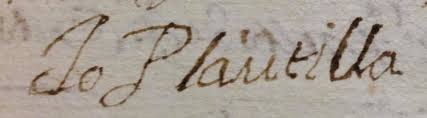 Io Plautilla